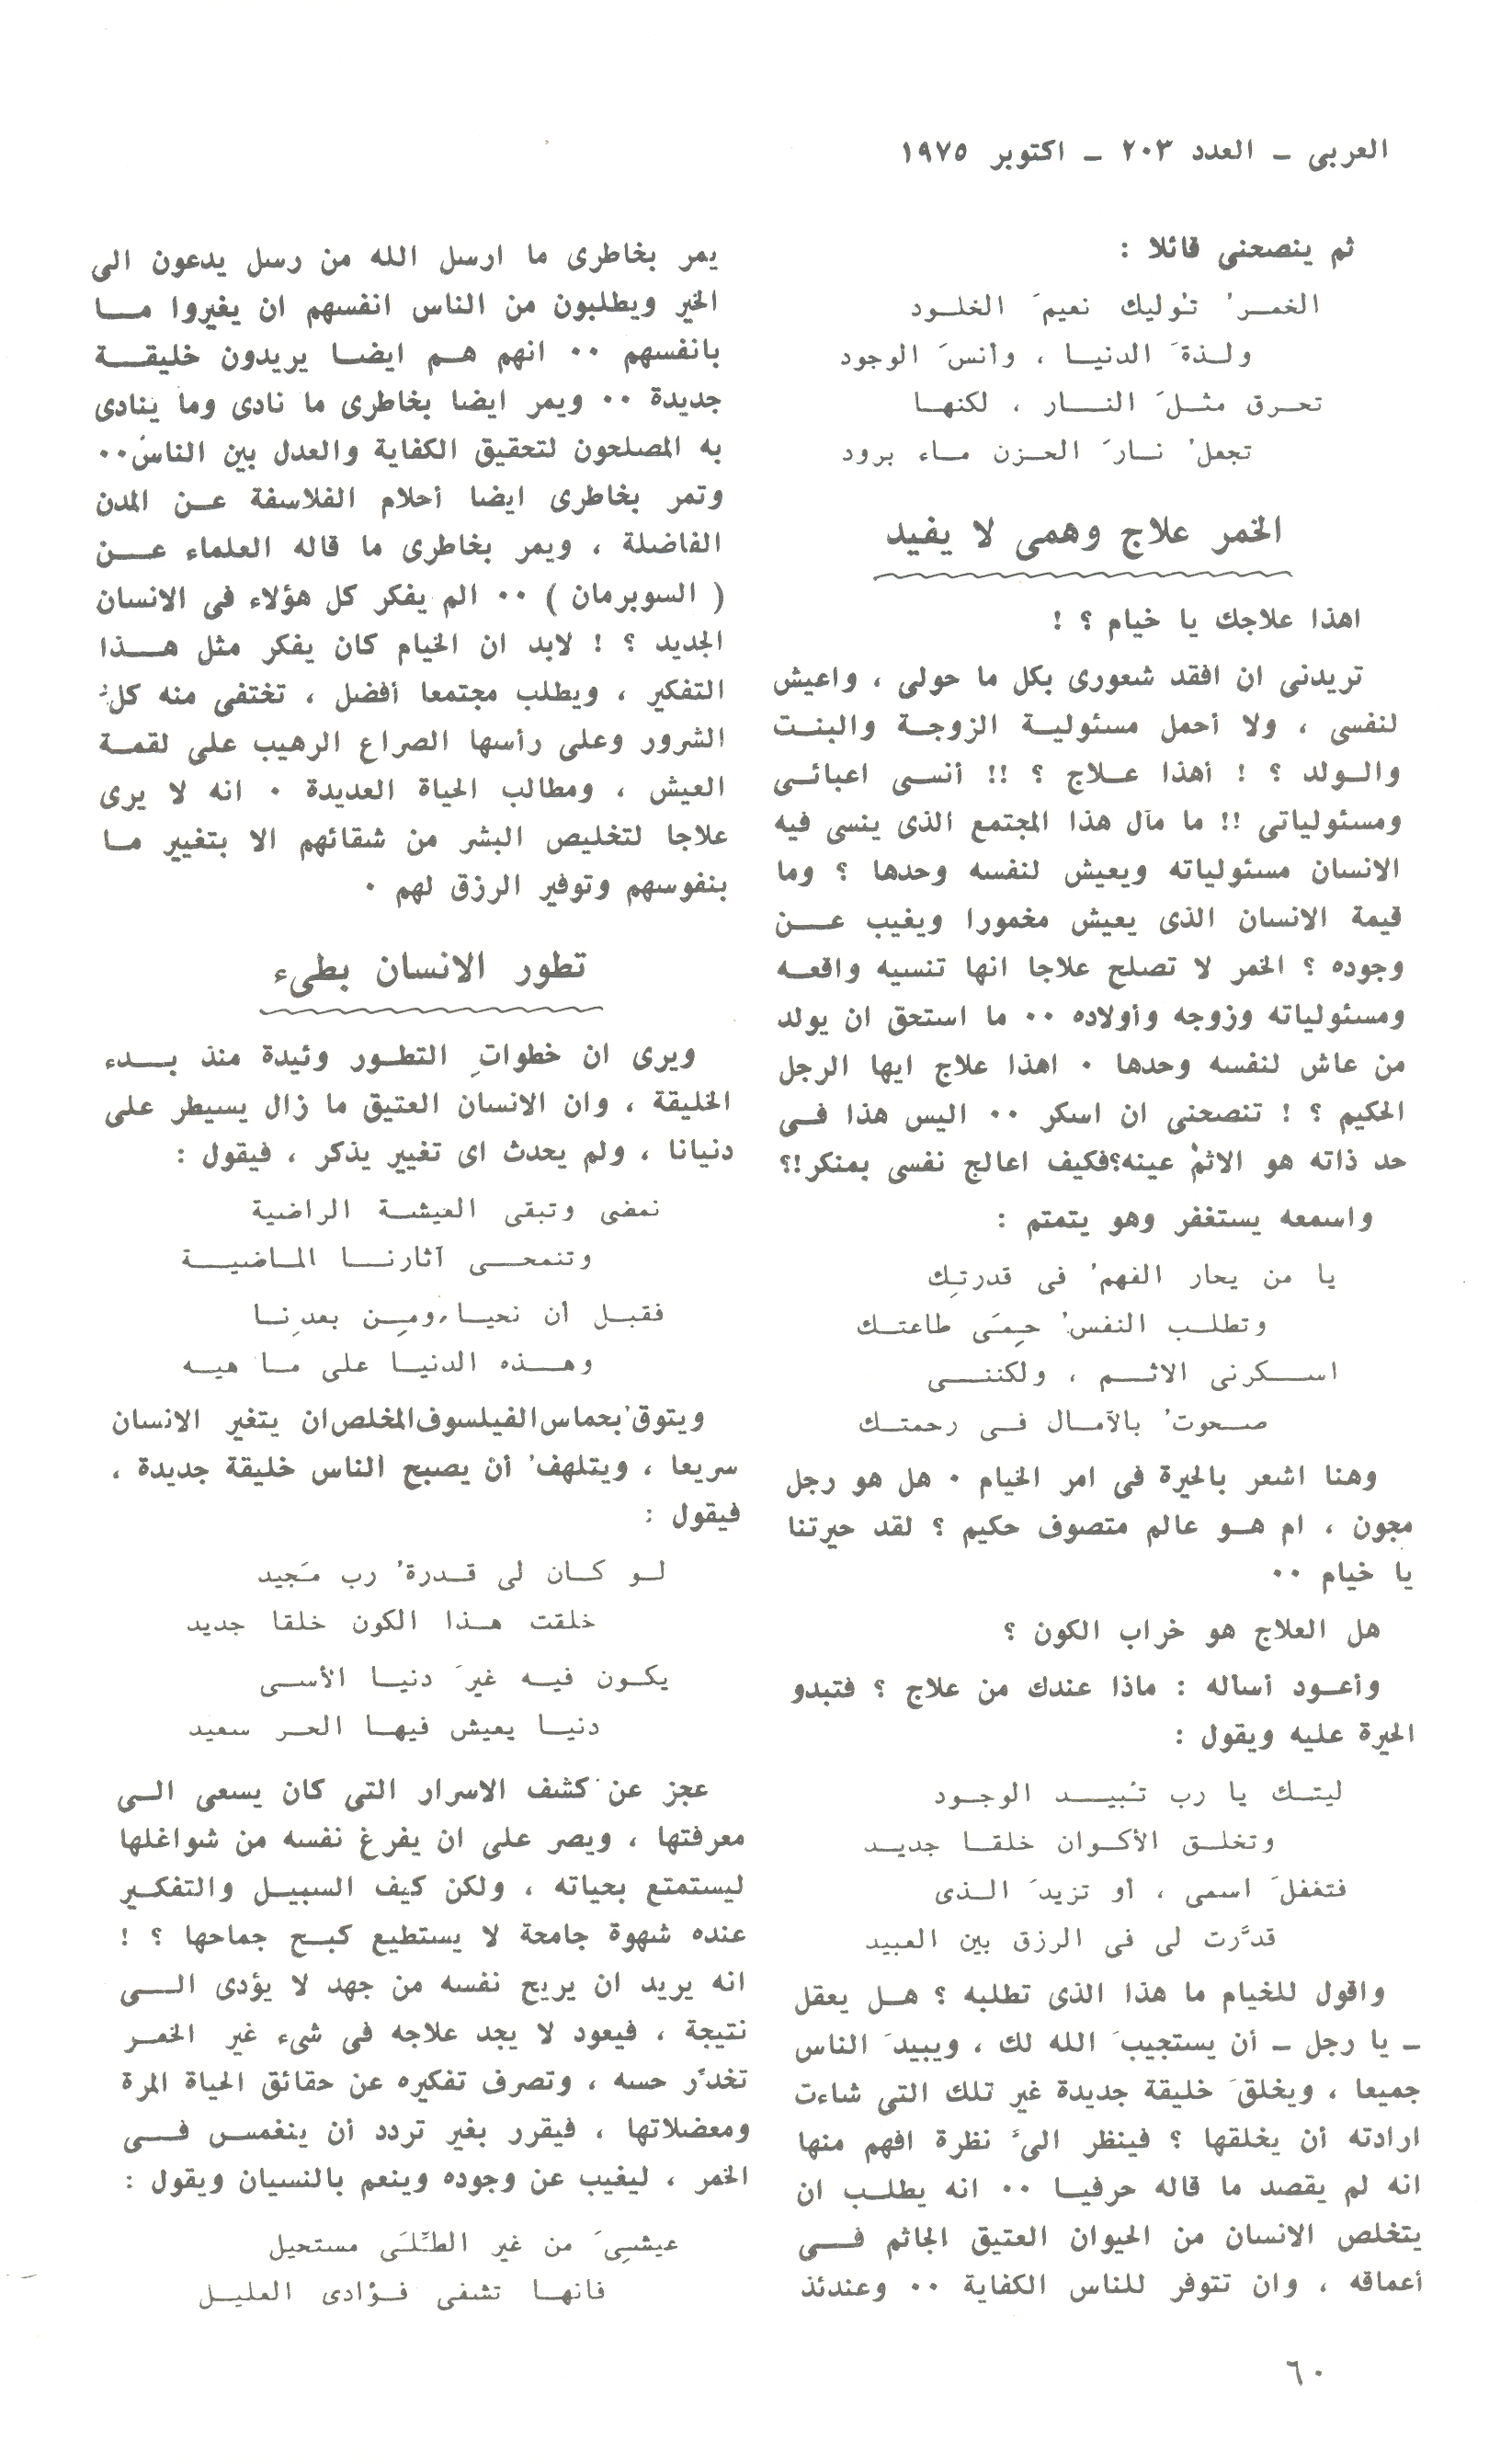 العربى ـ العدد ٢٠٣ ـ اكتوبر ١٩٧٥
ثم ينصحنى قائلا :
الخمــرُ تُوليك نعيمَ الخلــود
ولــذةَ الدنيــا ، وأنسَ الوجود
تحـرق مثــلَ النـــار ، لكنهــا
تجعلُ نــارَ الحــزن مــاء برود
الخمر علاج وهمى لا يفيد
اهذا علاجك يا خيام ؟ !
تريدنى ان افقد شعورى بكل ما حولى ، واعيش
لنفسى ، ولا أحمل مسئوليـة الزوجـة والبنـت
والـولد ؟ ! أهذا عـلاج ؟ !! أنسـى اعبائـى
ومسئولياتى !! ما مآل هذا المجتمع الذى ينسى فيه
الانسان مسئولياته ويعيش لنفسه وحدها ؟ وما
قيمة الانسان الذى يعيش مخمورا ويغيب عـــن
وجوده ؟ الخمر لا تصلح علاجا انها تنسيه واقعـه
ومسئولياته وزوجه وأولاده ٠٠ ما استحق ان يولد
من عاش لنفسه وحدها ٠ اهذا علاج ايها الرجل
الحكيم ؟ ! تنصحنى ان اسكر ٠٠ اليس هذا فــى
حد ذاته هو الاثمُ عينه؟فكيف اعالج نفسى بمنكر!؟
واسمعه يستغفر وهو يتمتم :
يا من يحار الفهمُ فى قدرتِك
وتطلــب النفسُ حِمَى طاعتــك
اســـكرنى الاثـــم ، ولكننـــى
صــحوتُ بالآمــال فــى رحمتــك
وهنا اشعر بالحيرة فى امر الخيام ٠ هل هو رجل
مجون ، ام هـو عالم متصوف حكيم ؟ لقد حيرتنا
يا خيام ٠٠
هل العلاج هو خراب الكون ؟
وأعـود أسأله : ماذا عندك من علاج ؟ فتبدو
الحيرة عليه ويقول :
ليتــك يا رب تُبيـــد الوجــود
وتخلــق الأكــوان خلقــا جديــد
فتغفلَ اسمى ، أو تزيدَ الـذى
قدَّرت لى فى الرزق بين العبيد
واقول للخيام ما هذا الذى تطلبه ؟ هـل يعقل
ـ يا رجل ـ أن يستجيبَ الله لك ، ويبيدَ الناس
جميعا ، ويخلقَ خليقة جديدة غير تلك التى شاءت
ارادته أن يخلقها ؟ فينظر الىَّ نظرة افهم منها
انه لم يقصد ما قاله حرفيــا ٠٠ انه يطلــب ان
يتخلص الانسان من الحيوان العتيق الجاثم فـــى
أعماقه ، وان تتوفر للناس الكفاية ٠٠ وعندئذ
يمر بخاطرى ما ارسل الله من رسل يدعون الى
الخير ويطلبون من الناس انفسهم ان يغيروا مـــا
بانفسهم ٠٠ انهم هـم ايضـا يريدون خليقـــة
جديدة ٠٠ ويمر ايضا بخاطرى ما نادى وما ينادى
به المصلحون لتحقيق الكفاية والعدل بين الناس٠٠
وتمر بخاطرى ايضا أحلام الفلاسفة عــن المدن
الفاضلة ، ويمر بخاطرى ما قاله العلماء عـــن
( السوبرمان ) ٠٠ الم يفكر كل هؤلاء فى الانسان
الجديد ؟ ! لابد ان الخيام كان يفكر مثل هـــذا
التفكير ، ويطلب مجتمعا أفضل ، تختفى منه كلُّ
الشرور وعلى رأسها الصراع الرهيب على لقمـة
العيش ، ومطالب الحياة العديدة ٠ انه لا يرى
علاجا لتخليص البشر من شقائهم الا بتغيير مــا
بنفوسهم وتوفير الرزق لهم ٠
تطور الانسان بطىء
ويرى ان خطواتِ التطـور وئيدة منذ بـــدء
الخليقة ، وان الانسان العتيق ما زال يسيطر على
دنيانا ، ولم يحدث اى تغيير يذكر ، فيقول :
نمضى وتبقى العيشــة الراضية
وتنمحـــى آثارنـــا المـاضيـــة
فقبــل أن نحيــا ومِــن بعدِنــا
وهـــذه الدنيــا على مــا هيــه
ويتوقُ بحماس الفيلسوف المخلص ان يتغير الانسان
سريعا ، ويتلهفُ أن يصبح الناس خليقة جديدة ،
فيقول :
لــو كــان لى قــدرةُ رب مَجيد
خلقت هــذا الكون خلقا جديد
يكـون فيــه غيرَ دنيــا الأســى
دنيــا يعيش فيهــا الحــر سعيد
عجز عن كشف الاسرار التى كان يسعى الــى
معرفتها ، ويصر على ان يفرغ نفسه من شواغلها
ليستمتع بحياته ، ولكن كيف السبيـل والتفكـير
عنده شهوة جامحة لا يستطيع كبـح جماحها ؟ !
انه يريد ان يريح نفسه من جهد لا يؤدى الـــى
نتيجة ، فيعود لا يجد علاجه فى شىء غير الخمـر
تخدّر حسه ، وتصرف تفكيره عن حقائق الحياة المرة
ومعضلاتها ، فيقرر بغير تردد أن ينغمس فـــى
الخمر ، ليغيب عن وجوده وينعم بالنسيان ويقول :
عيشىِيَ من غير الطِّلَى مستحيل
فانهــا تشفى فــؤادى العليــل
٦٠